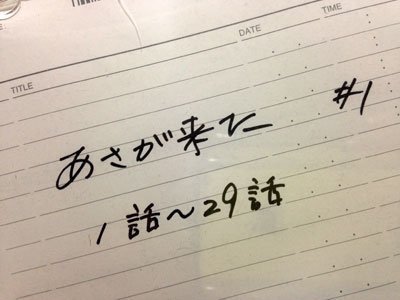 DATE
TIME
TITLE
#1
あさが来た
1話～29話